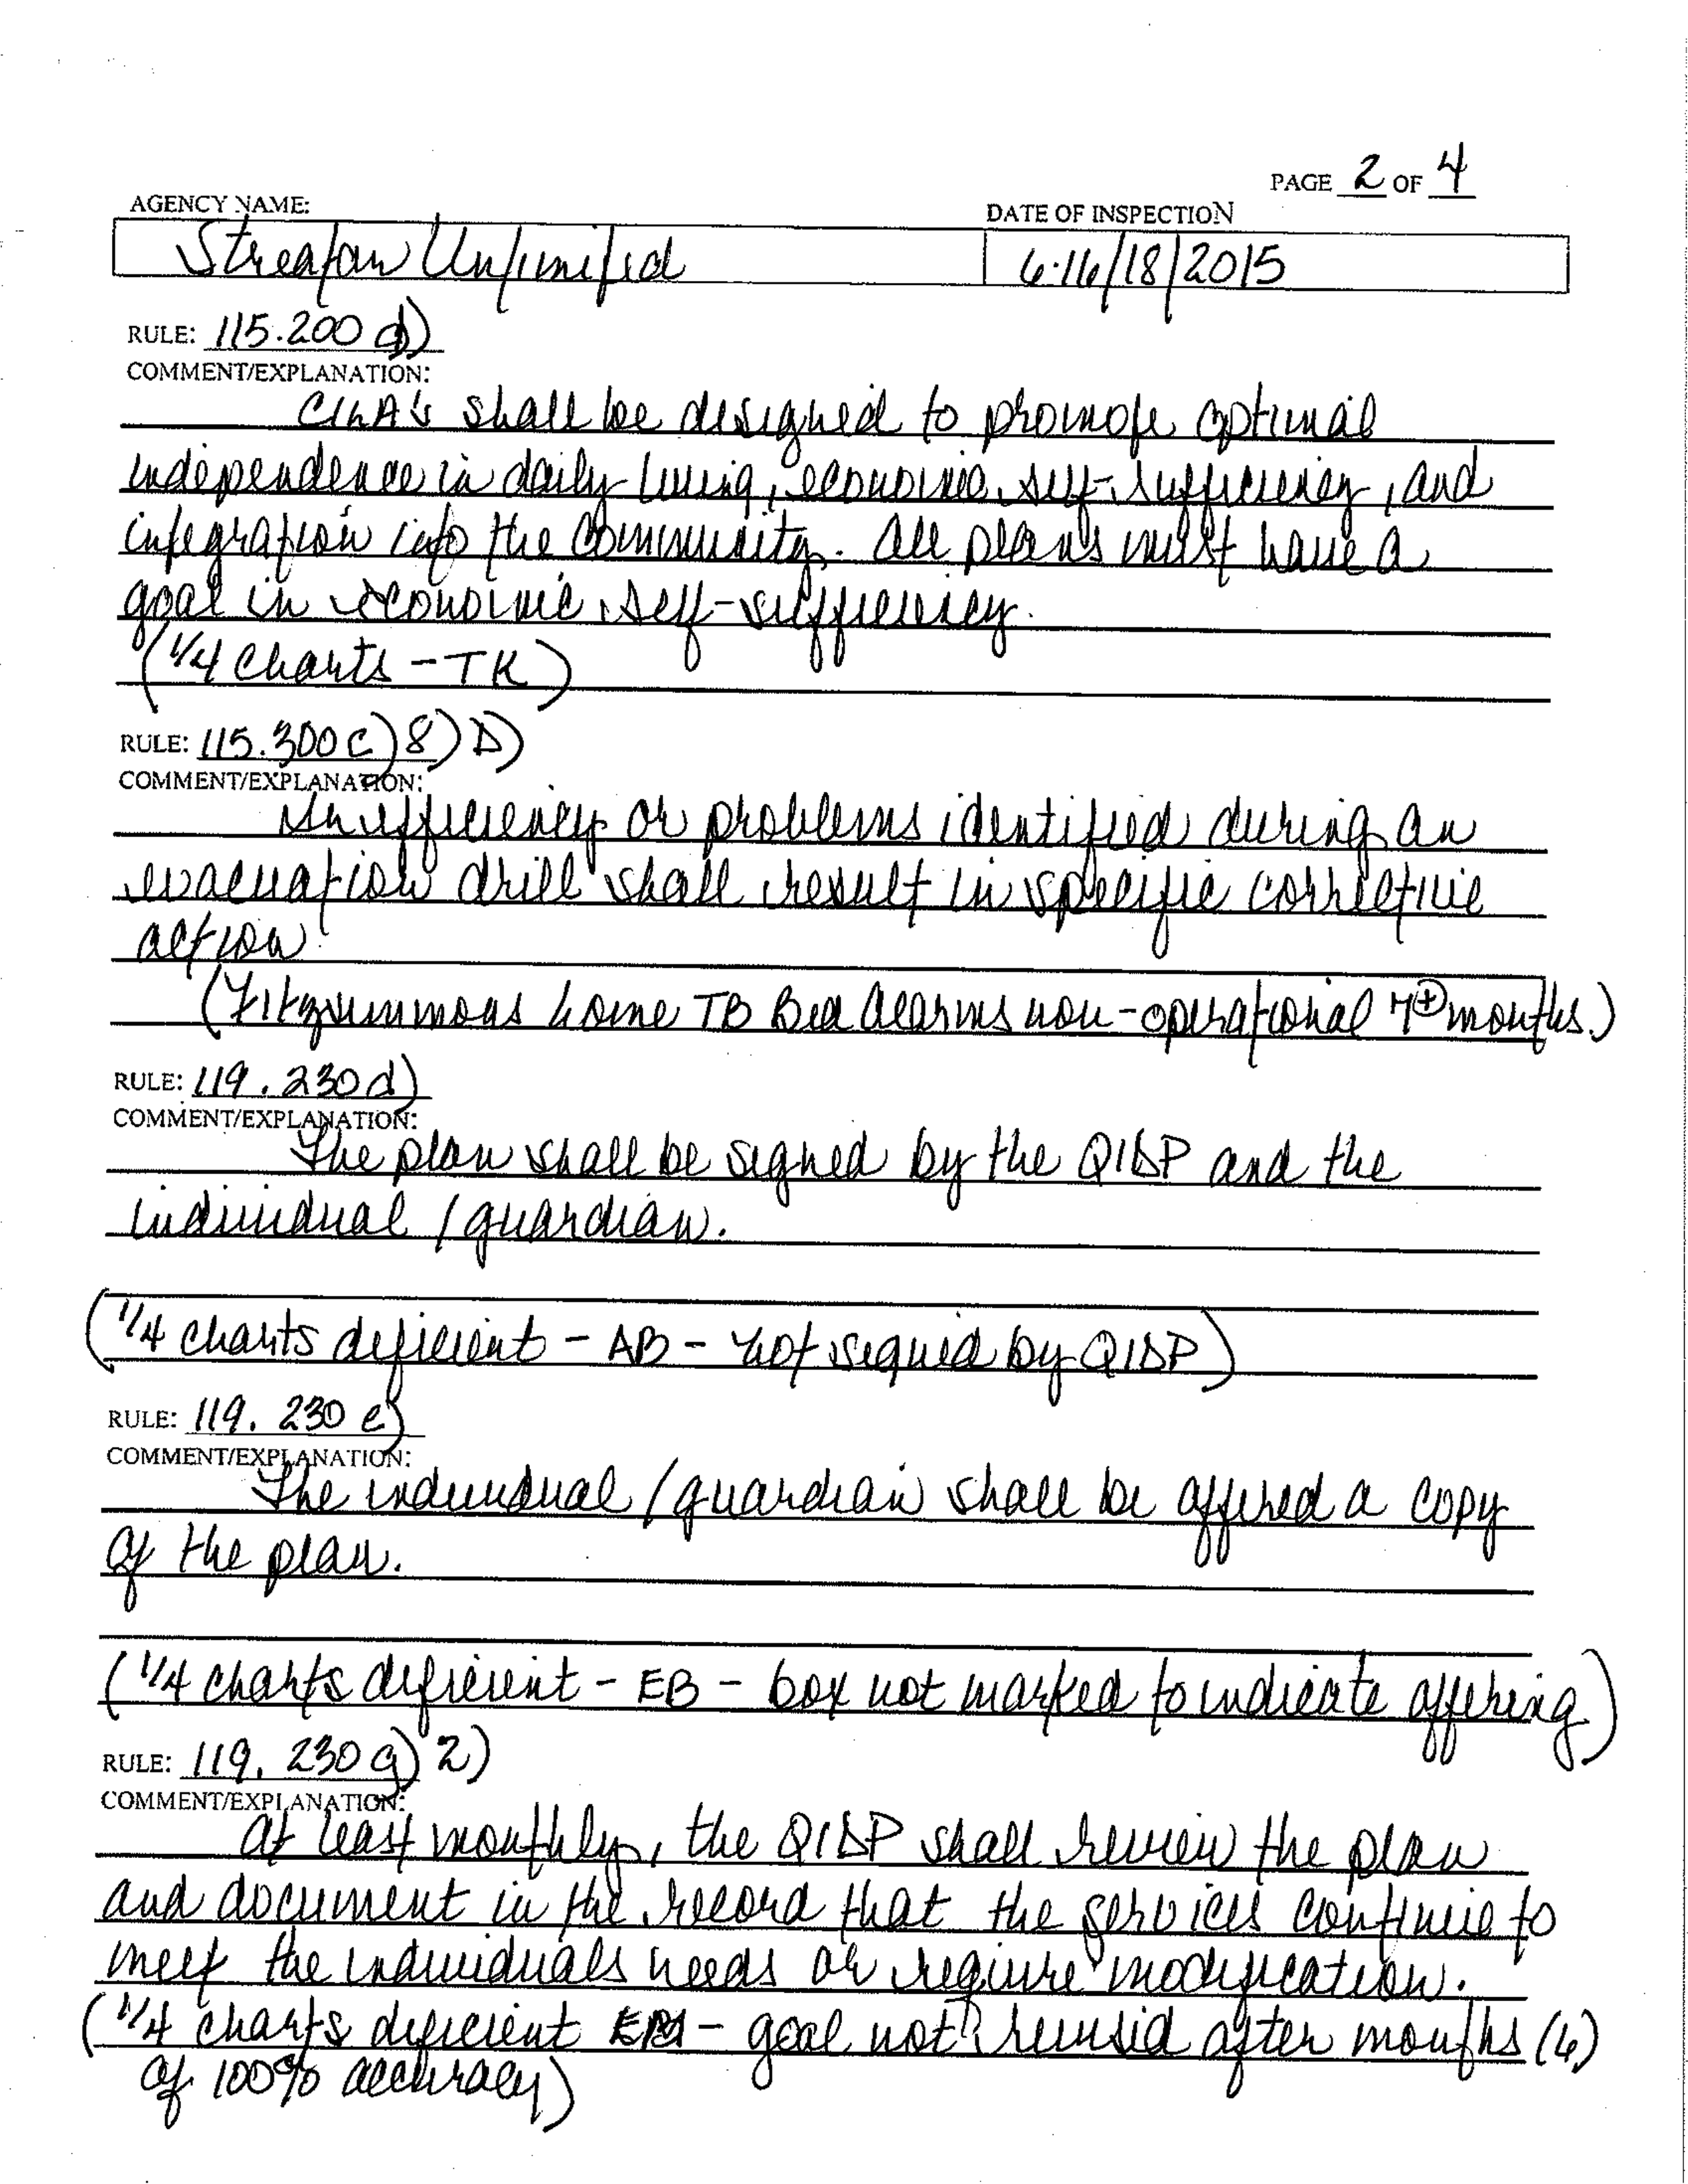 PAGE 2 OF 4
AGENCY NAME: DATE OF INSPECTION
Streator Unlimited 6.16/18/2015
RULE: 115.200 d)
COMMENT/EXPLANATION:
CILA's shall be designed to promote optimal
independence in daily living, economic self-sufficiency, and
integration into the community. All plans must have a
goal in economic self-sufficiency.
(1/4 charts - TK)
RULE: 115.300 c) 8) D)
COMMENT/EXPLANATION:
Inefficiency or problems identified during an
evacuation drill shall result in specific corrective
action
(Fitzsimmons home TB Bed Alarms non-operational 7+ months.)
RULE: 119.230 d)
COMMENT/EXPLANATION:
The plan shall be signed by the QIDP and the
individual/guardian.
(1/4 charts deficient - AB - not signed by QIDP)
RULE: 119.230 e)
COMMENT/EXPLANATION:
The individual/guardian shall be offered a copy
of the plan.
(1/4 charts deficient - EB - box not marked to indicate offering)
RULE: 119.230 g) 2)
COMMENT/EXPLANATION:
At least monthly, the QIDP shall review the plan
and document in the record that the services continue to
meet the individuals needs or require modification.
(1/4 charts deficient - goal not revised after months (6)
of 100% accuracy)